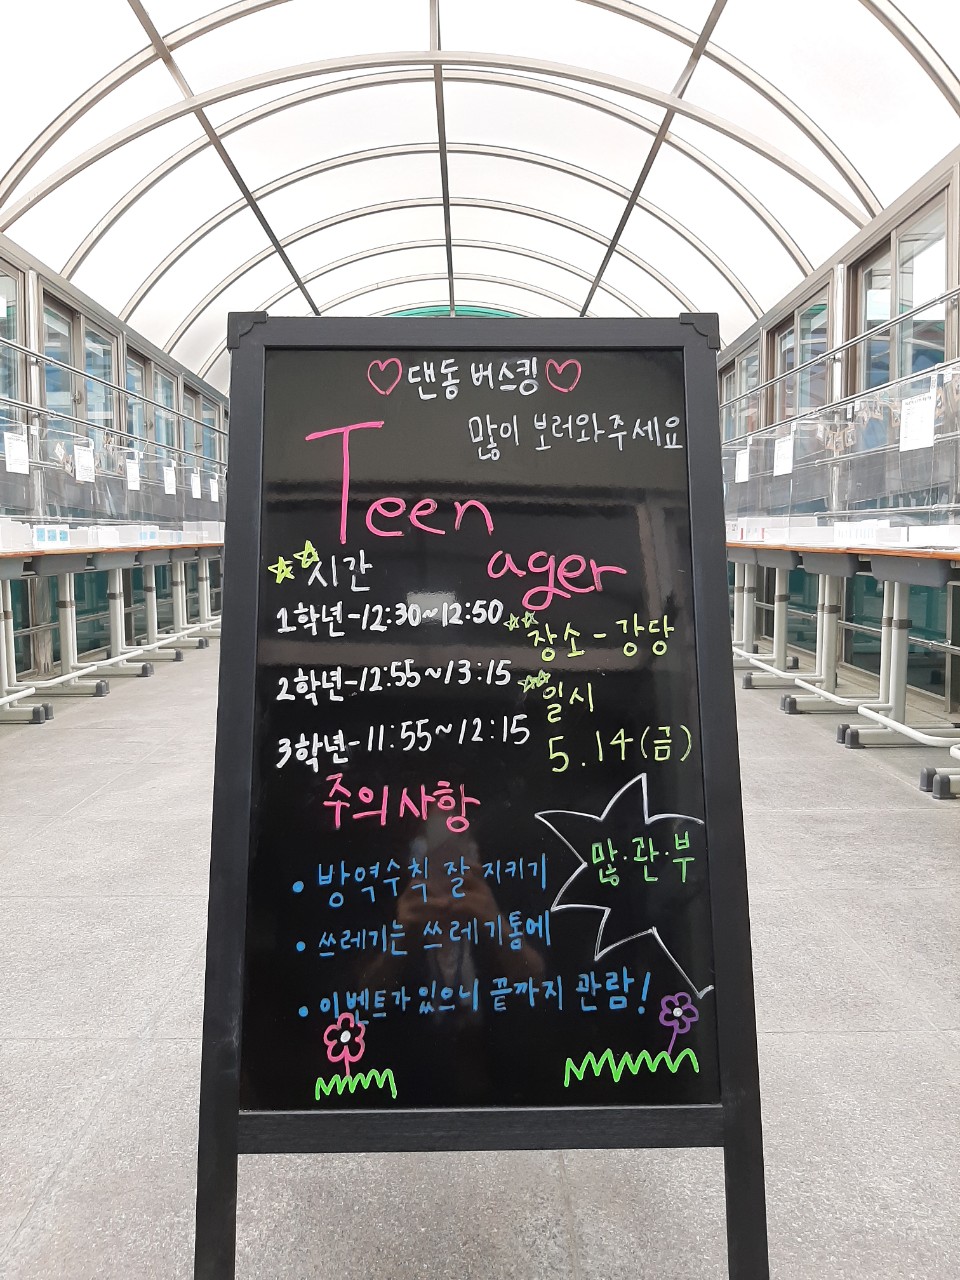 ♡댄동 버스킹♡
많이 보러와주세요
Teen
ager
시간
1학년-12:30~12:50
2학년-12:55~13:15
3학년-11:55~12:15
장소-강당
일시
5.14(금)
주의사항
많·관·부
• 방역수칙 잘 지키기
• 쓰레기는 쓰레기통에
• 이벤트가 있으니 끝까지 관람!